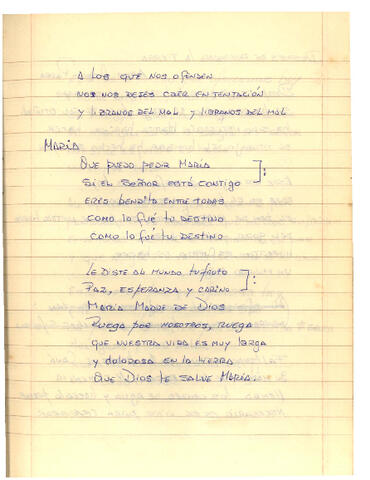 A LOS QUE NOS OFENDEN
NOS NOS DEJES CAER EN TENTACIÓN
Y LIBRANOS DEL MAL Y LIBRANOS DEL MAL
MARÍA
QUE PUEDO PEDIR MARÍA
SI EL SEÑOR ESTÁ CONTIGO
ERES BENDITA ENTRE TODAS
COMO LO FUÉ TU DESTINO
COMO LO FUÉ TU DESTINO
LE DISTE AL MUNDO TU FRUTO
PAZ, ESPERANZA Y CARIÑO
MARÍA MADRE DE DIOS
RUEGA POR NOSOTROS, RUEGA
QUE NUESTRA VIDA ES MUY LARGA
Y DOLOROSA EN LA TIERRA
QUE DIOS TE SALVE MARÍA.